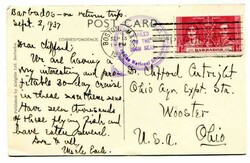 Barbados - on return trip.
Sept. 2, '37
POST CARD
CORRESPONDENCE
Dear Clifford:
We are having a
very interesting and profitable
10-day cruise
in these southern seas.
Have seen thousands
of these flying fish and
have eaten several.
BARBADOS
Dr. Clifford Cutright
Ohio Agr. Expt. Sta.
Wooster
Ohio
U.S.A.